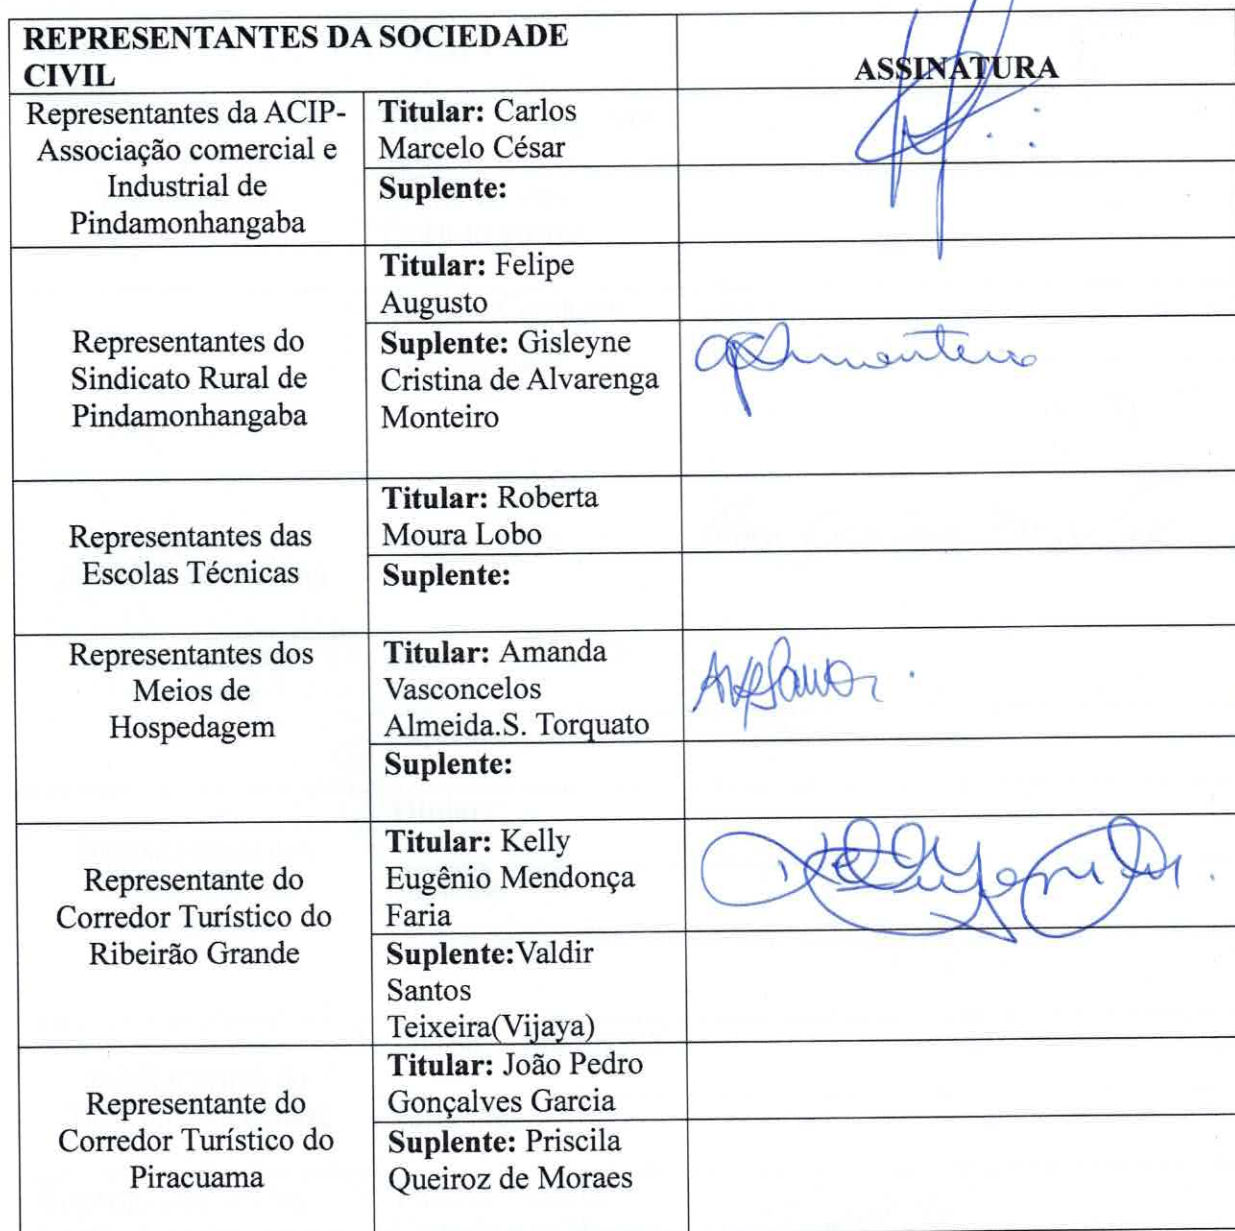 REPRESENTANTES DA SOCIEDADE
CIVIL
ASSINATURA
Representantes da ACIP-
Associação comercial e
Industrial de
Pindamonhangaba
Titular: Carlos
Marcelo César
Suplente:
Representantes do
Sindicato Rural de
Pindamonhangaba
Titular: Felipe
Augusto
Suplente: Gisleyne
Cristina de Alvarenga
Monteiro
Representantes das
Escolas Técnicas
Titular: Roberta
Moura Lobo
Suplente:
Representantes dos
Meios de
Hospedagem
Titular: Amanda
Vasconcelos
Almeida.S. Torquato
Suplente:
Representante do
Corredor Turístico do
Ribeirão Grande
Titular: Kelly
Eugênio Mendonça
Faria
Suplente:Valdir
Santos
Teixeira(Vijaya)
Representante do
Corredor Turístico do
Piracuama
Titular: João Pedro
Gonçalves Garcia
Suplente: Priscila
Queiroz de Moraes